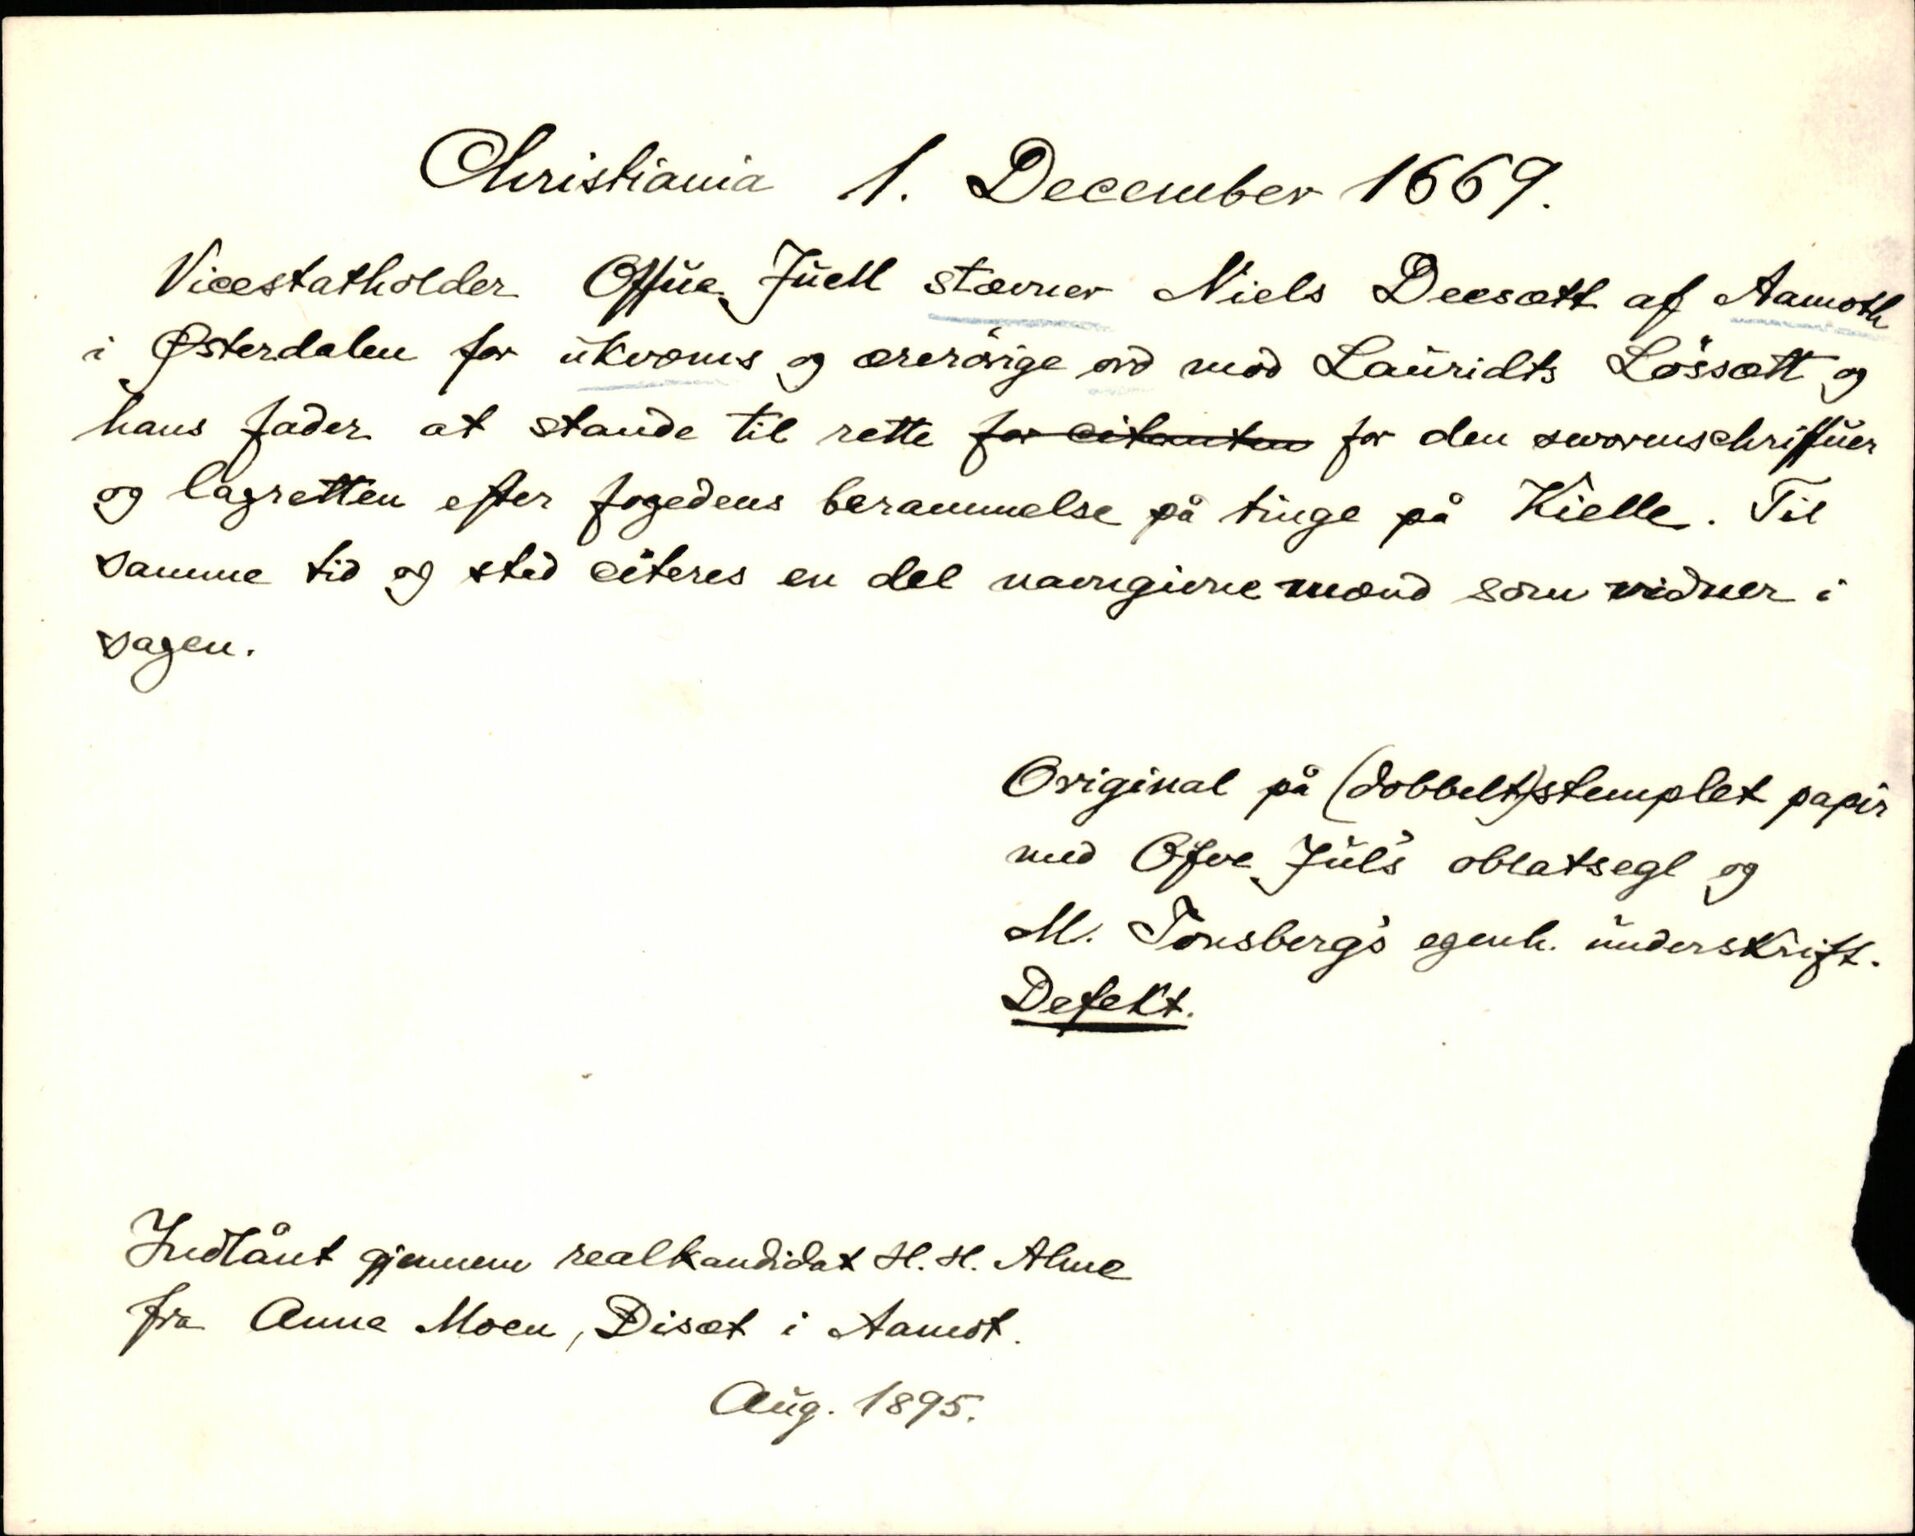 Christiania 1. December 1669.
Vicestatholder Offue Juell stævner Niels Deesætt af Aamoth
i Østerdalen for ukvæms og ærerörige ord mod Lauridts Lössætt og
hans fader at stande til rette for citanten for den sworenschriffuer
og lagretten efter fogedens berammelse på tinge på Kielle. Til
samme tid og sted citeres en del navngivne mænd som vidner i
sagen.
Original på (dobbelt)stemplet papir
med Ofve Jul's oblatsegl og
M. Tönsberg's egenh. underskrift.
Defekt.
Indlånt gjennem realkandidat H. H. Alme
fra Anne Moen, Disæt i Aamot.
Aug. 1895.